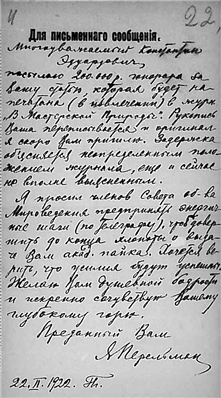 22.
Для письменнаго сообщенія.
Многоуважаемый Константин
Эдуардович,
посылаю 200.000 р. гонорара за
Вашу статью, которая будет на-
печатана (в извлечении) в журн.
"В Мастерской Природы". Рукопись
Ваша переписывается и оригинал
я скоро Вам пришлю. Задержка
объясняется неопределенным поло-
жением журнала, еще и сейчас
не вполне выясненным.
Я просил членов Совета об-ва
Мироведения предпринять энергич-
ные шаги (по телеграфу), чтобы довер-
шить до конца хлопоты о
Вам акад. пайка. Хочется ве-
рить, что усилия будут успешны.
Желаю Вам душевной бодрости
и искренно сочувствую Вашему
глубокому горю.
Преданный Вам
Я. Перельман
22.II.1922.